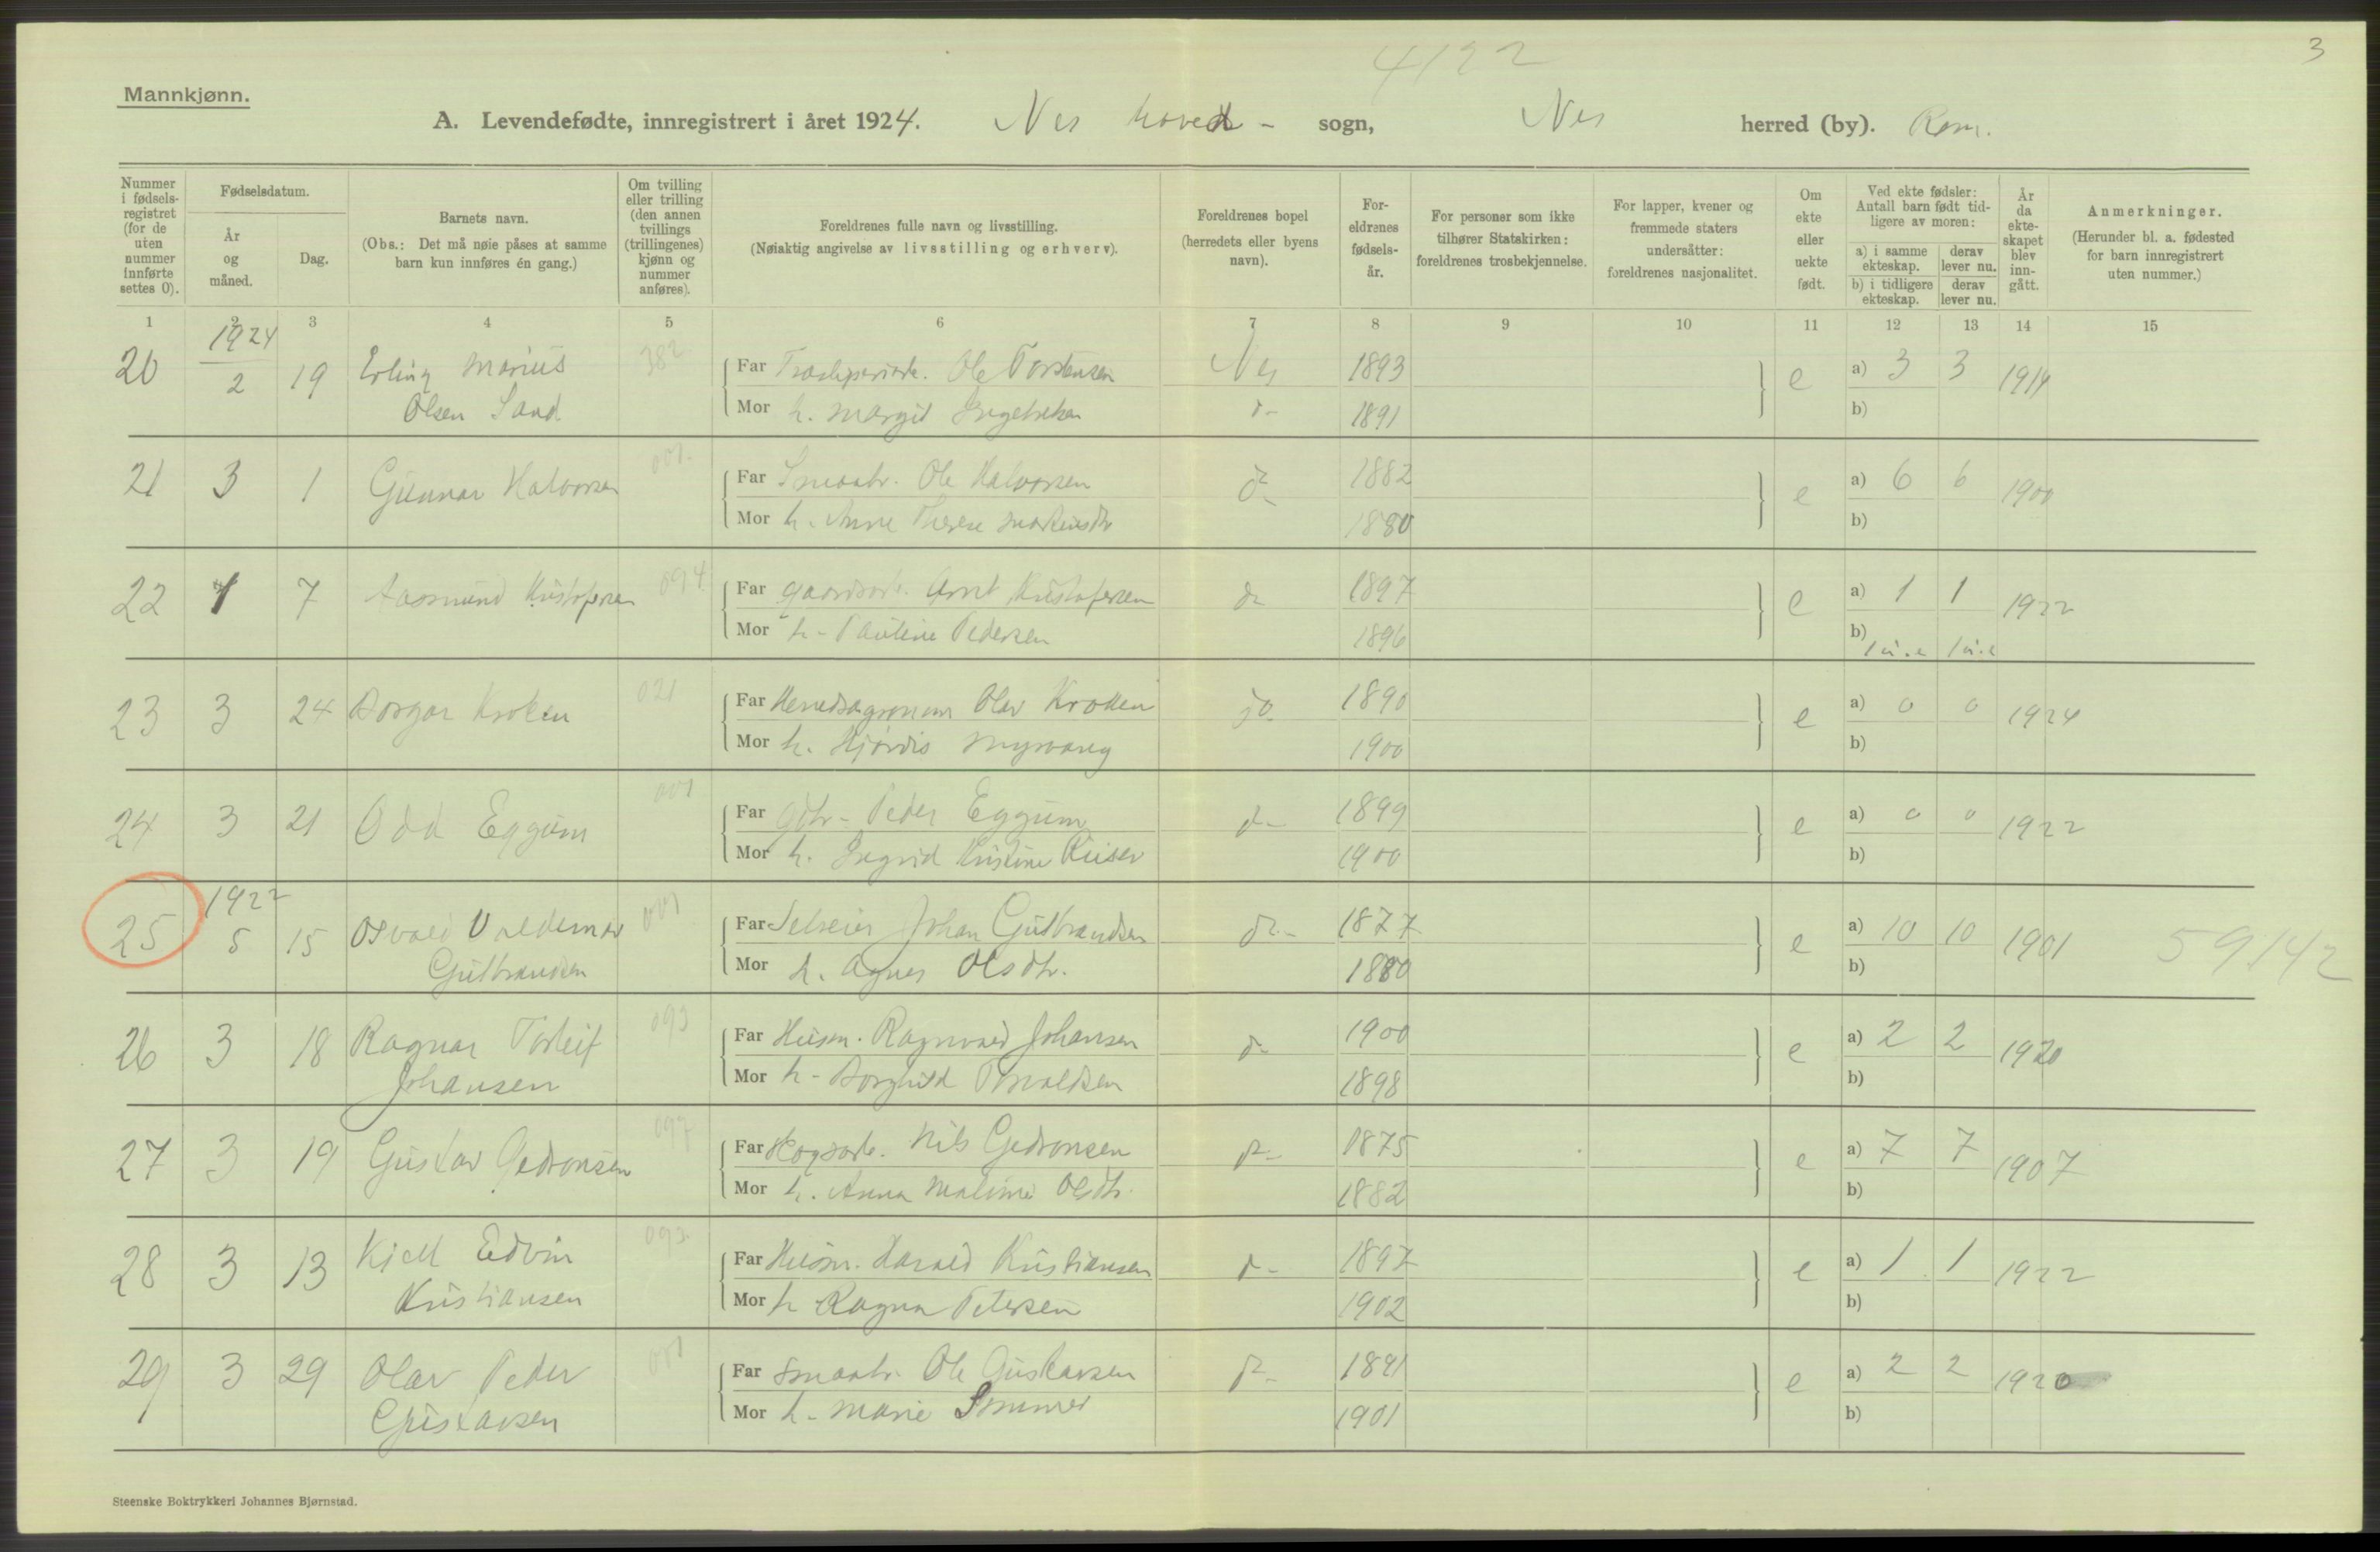 4122
3
Mannkjønn.
A. Levendefødte, innregistrert i året 1924. Nes hoved- sogn, Nes herred (by). Rom.
Nummer i fødsels-registret (for de uten nummer innførte settes 0).
Fødselsdatum.
År og måned.
Dag.
Barnets navn.
(Obs.: Det må nøie påses at samme barn kun innføres én gang.)
Om tvilling eller trilling (den annen tvillings (trillingenes) kjønn og nummer anføres).
Foreldrenes fulle navn og livsstilling.
(Nøiaktig angivelse av livsstilling og erhverv).
Foreldrenes bopel (herredets eller byens navn).
For-eldrenes fødsels-år.
For personer som ikke tilhører Statskirken: foreldrenes trosbekjennelse.
For lapper, kvener og fremmede staters undersåtter: foreldrenes nasjonalitet.
Om ekte eller uekte født.
Ved ekte fødsler: Antall barn født tid-ligere av moren:
a) i samme ekteskap. derav lever nu.
b) i tidligere ekteskap. derav lever nu.
År da ekte-skapet blev inn-gått.
Anmerkninger.
(Herunder bl. a. fødested for barn innregistrert uten nummer.)
1 2 3 4 5 6 7 8 9 10 11 12 13 14 15
1924
20 2 19 Erling Marius 382 Far Ole Torstensen Nes 1893 e a) 3 3 1914
Olsen Sand Mor h. Margit Ingebretsen d- 1891 b)
21 3 1 Gunnar Halvorsen 001. Far Smaabr. Ole Halvorsen d- 1882 e a) 6 6 1900
Mor h. Anne Therese 1880 b)
22 1 7 Aasmund Kristofersen 094 Far gaardsarb. Arnt Kristofersen d- 1897 e a) 1 1 1922
Mor h- Pauline Pedersen 1896 b) 1 u.e 1 u.e
23 3 24 Borgar Kroken 021 Far Herredsagronom Olav Kroken do 1890 e a) 0 0 1924
Mor h. Hjørdis Myrvang 1900 b)
24 3 21 Odd Eggum 001 Far Gbr- Peder Eggum d- 1899 e a) 0 0 1922
Mor h. Ingrid Kristine Kiser 1900 b)
1922
25 5 15 Osvald Valdemar 001 Far Selveier Johan Gulbrandsen d- 1877 e a) 10 10 1901 59142
Gulbrandsen Mor h. Agnes Olsdtr. 1880 b)
26 3 18 Ragnar Torleif 093 Far Husm. Ragnvald Johansen d- 1900 e a) 2 2 1920
Johansen Mor h- Borghild Torvaldsen 1898 b)
27 3 19 Gustav Gedionsen 097 Far Skogsarb. Nils Gedionsen d- 1875 e a) 7 7 1907
Mor h. Anna Maline Olsdtr. 1882 b)
28 3 13 Kjell Edvin 093. Far Husm. Harald Kristiansen d- 1897 e a) 1 1 1922
Kristiansen Mor h Ragna Petersen 1902 b)
29 3 29 Olav Peder 001 Far Smaabr. Ole Gustavsen d- 1891 e a) 2 2 1920
Gustavsen Mor h- Marie 1901 b)
Steenske Boktrykkeri Johannes Bjørnstad.